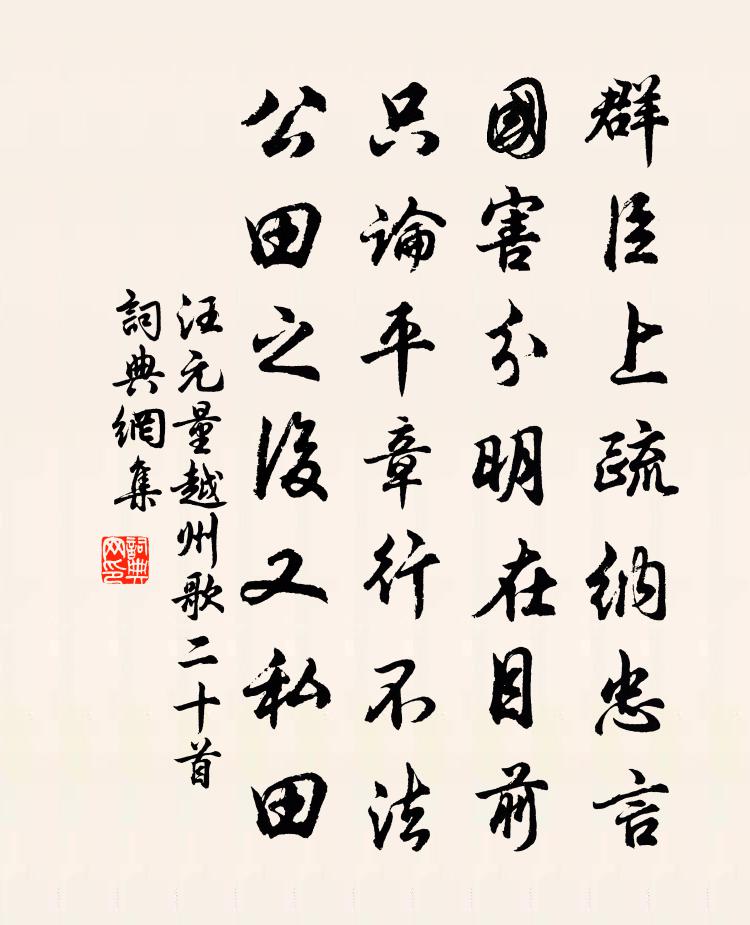 群臣上疏納忠言
國害分明在目前
只論平章行不法
公田之後又私田
汪元量越州歌二十首
詞典網集
詞典網印